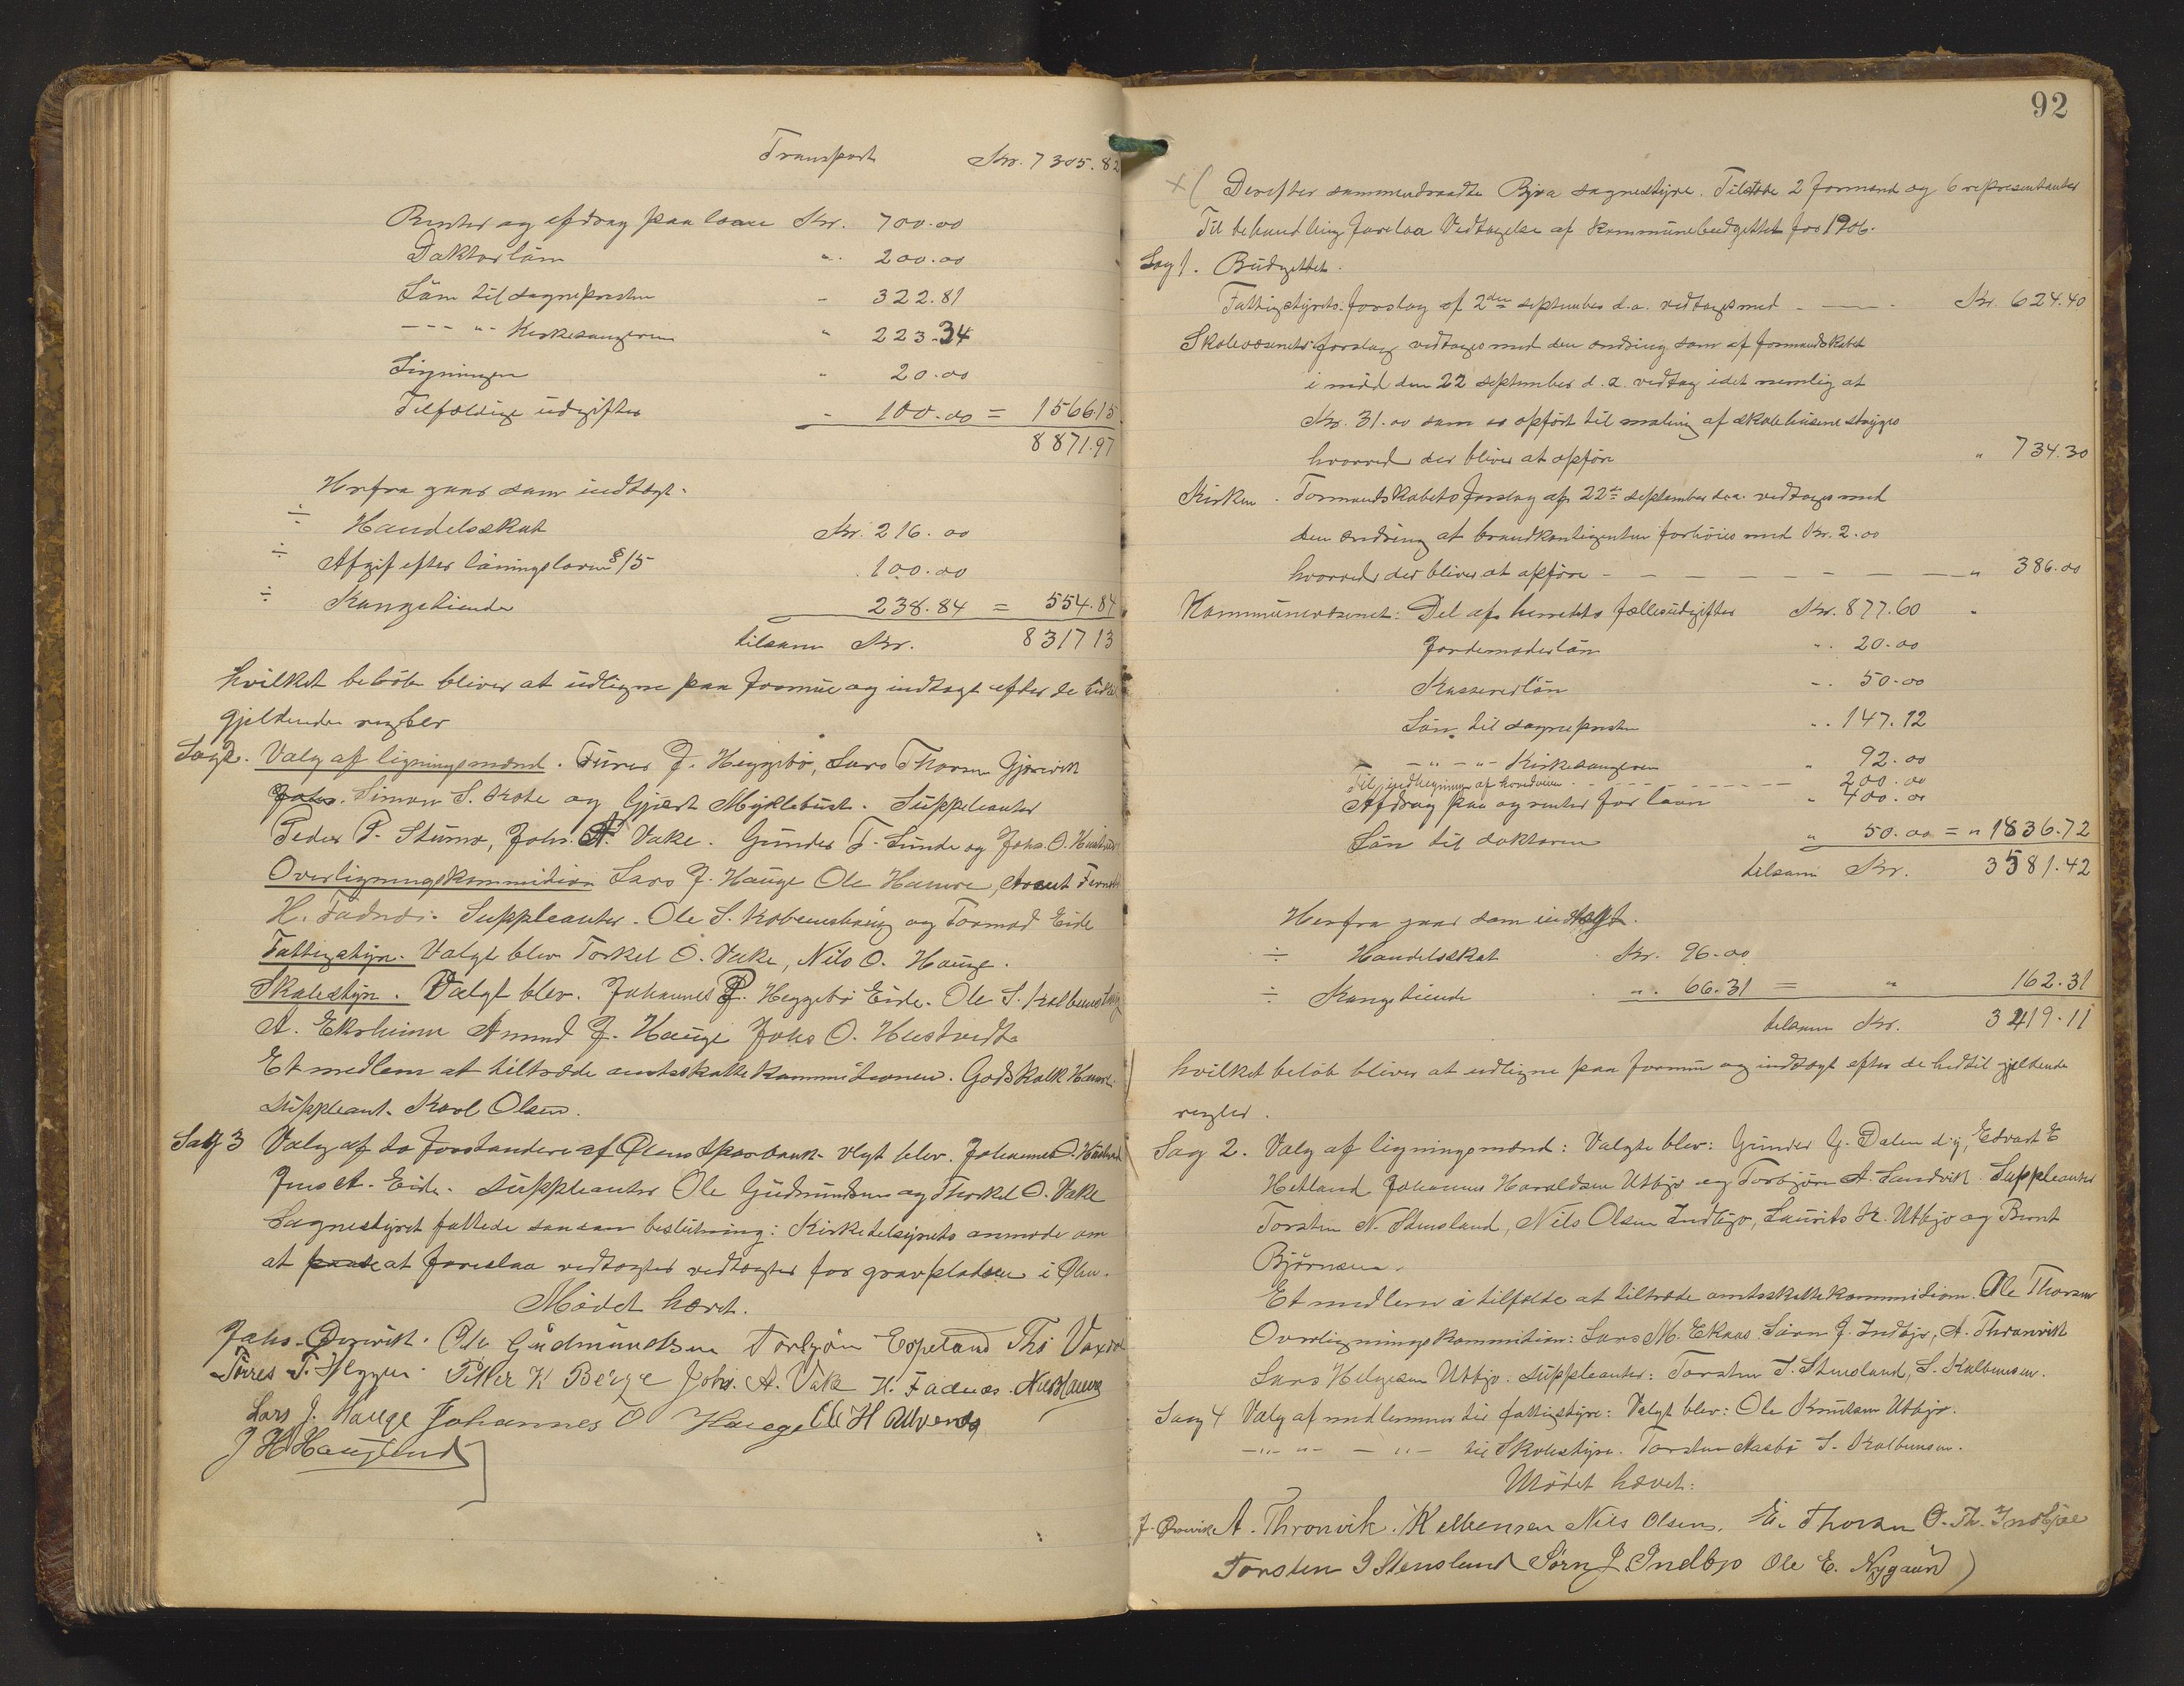 Transport Kr. 7305.82
Renter og afdrag paa laan Kr. 700.00
Doktorløn " 200.00
Løn til sognepresten - 322.81
--- " - Kirkesangeren " 223.34
Ligningen " 20.00
Tilfældige udgifter - 100.00 = 1566.15
8871.97
Herfra gaar som indtægt.
÷ Handelsskat Kr. 216.00
÷ Afgif efter løningsloven § 15 100.00
÷ Kongetiende 238.84 = 554.84
tilsam Kr. 8317 13
hvilket beløb bliver at udligne paa formue og indtægt efter de
gjeldende regler
Sag 2. Valg af ligningsmænd. Tures J. Heggebø, Lars Thorsen Gjerevik
Johs. Simon S. Kote og Gjert Myklebust. Suppleanter
Peder P. Stumo, Johs. A. Vake. Gunder T. Sunde og Johs. O. Hustvedt
Overligningskommition Lars J. Hauge Ole Hamre,
H. Fadnes. Suppleanter. Ole S. Kolbenstveig og Tormod Eide
Fattigstyre. Valgt blev Torkel O. Vake, Nils O. Hauge.
Skolestyre. Valgt blev. Johannes J. Heggebø Eide. Ole S. Kolbenstveig
A. Ekrheim Amund J. Hauge Johs O. Hustvedt.
Et medlem at tiltræde amtsskattekommitionen. Godskalk Hamre.
Suppleant. Karl Olsen.
Sag 3 Valg af to forstandere af Ølens Sparbank. vlgt blev. Johannes O. Hustvedt
Jens A. Eide. Suppleanter Ole Gudmundsen og Thorkel O. Vake
Sognestyret fattede saadan beslutning: Kirketilsynets anmode om
at at foreslaa vedtægter vedtægter for gravpladsen i Ølen.
Mødet hævet.
Johs. Ørevik. Ole Gudmundsen Torbjørn Espeland Ths Vaxdal
Tørres T. Heggen. Petter K Berge Johs. A. Vake H. Fadnes. Nils Hauge
Lars J. Hauge Johannes O Hauge Ole H Alvendo
J H Haugland
92
x ( Derefter sammentraadte Bjoa sognestyre. Tilstede 2 formænd og 6 representanter
Til behandling forelaa Vedtagelse af kommunebudgettet for 1906.
Sag 1. Budgettet.
Fattigstyrets forslag af 2den september d.a. vedtages med - Kr. 624.40
Skolevæsenets forslag vedtages med den ændring som af formandskabet
i mød den 22 september d.a. vedtag idet nemlig at
Kr. 31.00 som er opført til maling af skolehusene stryges
hvorved der bliver at opføre " 734.30
Kirken. Formandskabets forslag af 22de september d.a. vedtages med
den ændring at brandkontigenten forhøies med Kr. 2.00
hvorved der bliver at opføre - " 386.00
Kommunevæsenet: Del af herredets fællesudgifter Kr. 877.60 "
Jordemoderløn " 20.00
Kassererløn " 50.00
Løn til sognepresten " 147.12
- " - " - Kirkesangeren " 92.00
Til indhegning af hovedveien - 200.00
Afdrag paa og renter for laan " 400.00
Løn til doktoren " 50.00 = " 1836.72
tilsam Kr. 3581.42
Herfra gaar som indtægt.
÷ Handelsskat Kr. 96.00
÷ Kongetiende " 66.31 = " 162.31
tilsam Kr. 3419.11
hvilket beløb bliver at udligne paa formue og indtægt efter de hidtil gjeldende
regler.
Sag 2. Valg af ligningsmænd: Valgte blev: Gunder G. Dalen d.y, Edvart E
Hetland Johannes Haraldsen Utbjo og Torbjørn A. Sandvik. Suppleanter
Torsten N. Stensland, Nils Olsen Indbjo, Laurits K. Utbjo og Bernt
Bjørnsen.
Et medlem i tilfælde at tiltræde amtsskattekommition. Ole Thorsen
Overligningskommition: Lars M. Ekaas Sørn J. Indbjo, A. Thronvik
Lars Helgesen Utbjo. Suppleanter: Torsten J. Stensland, S. Kolbensen.
Sag 4 Valg af medlemmer til fattigstyre: Valgt blev: Ole Knutsen Utbjo.
- " - " - - " - til Skolestyre. Torsten Aasbø S. Kolbensen.
Mødet hævet:
J. Ørevik A. Thronvik. S Kolbensen Nils Olsen. E. Thorsen O. Th. Indbjoe
Torsten J Stensland Sørn J. Indbjo Ole E. Nygaard )